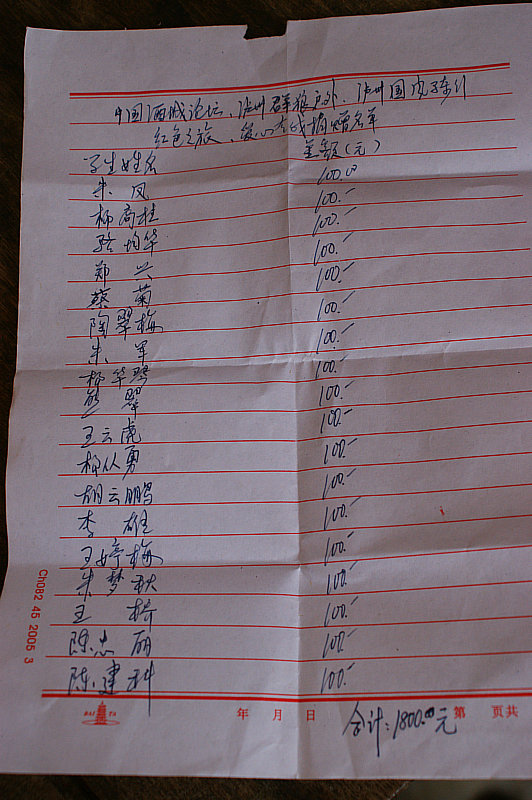 中国酒城论坛、泸州群狼户外、泸州国
红色之旅、爱心 捐赠名单
学生姓名 金额(元)
朱凤 100.00
杨高桂 100.-
骆均华 100.-
郑兴 100.-
蔡菊 100.-
陶翠梅 100.-
朱军 100.-
杨华琴 100.-
熊翠 100.-
王云虎 100.-
杨从勇 100.-
胡云鹏 100.-
李雄 100.-
王婷梅 100.-
朱梦秋 100.-
王椅 100.-
陈志丽 100.-
陈建科 100.-
年 月 日 第 页共
合计:1800.00元
Ch082 45 2005 3